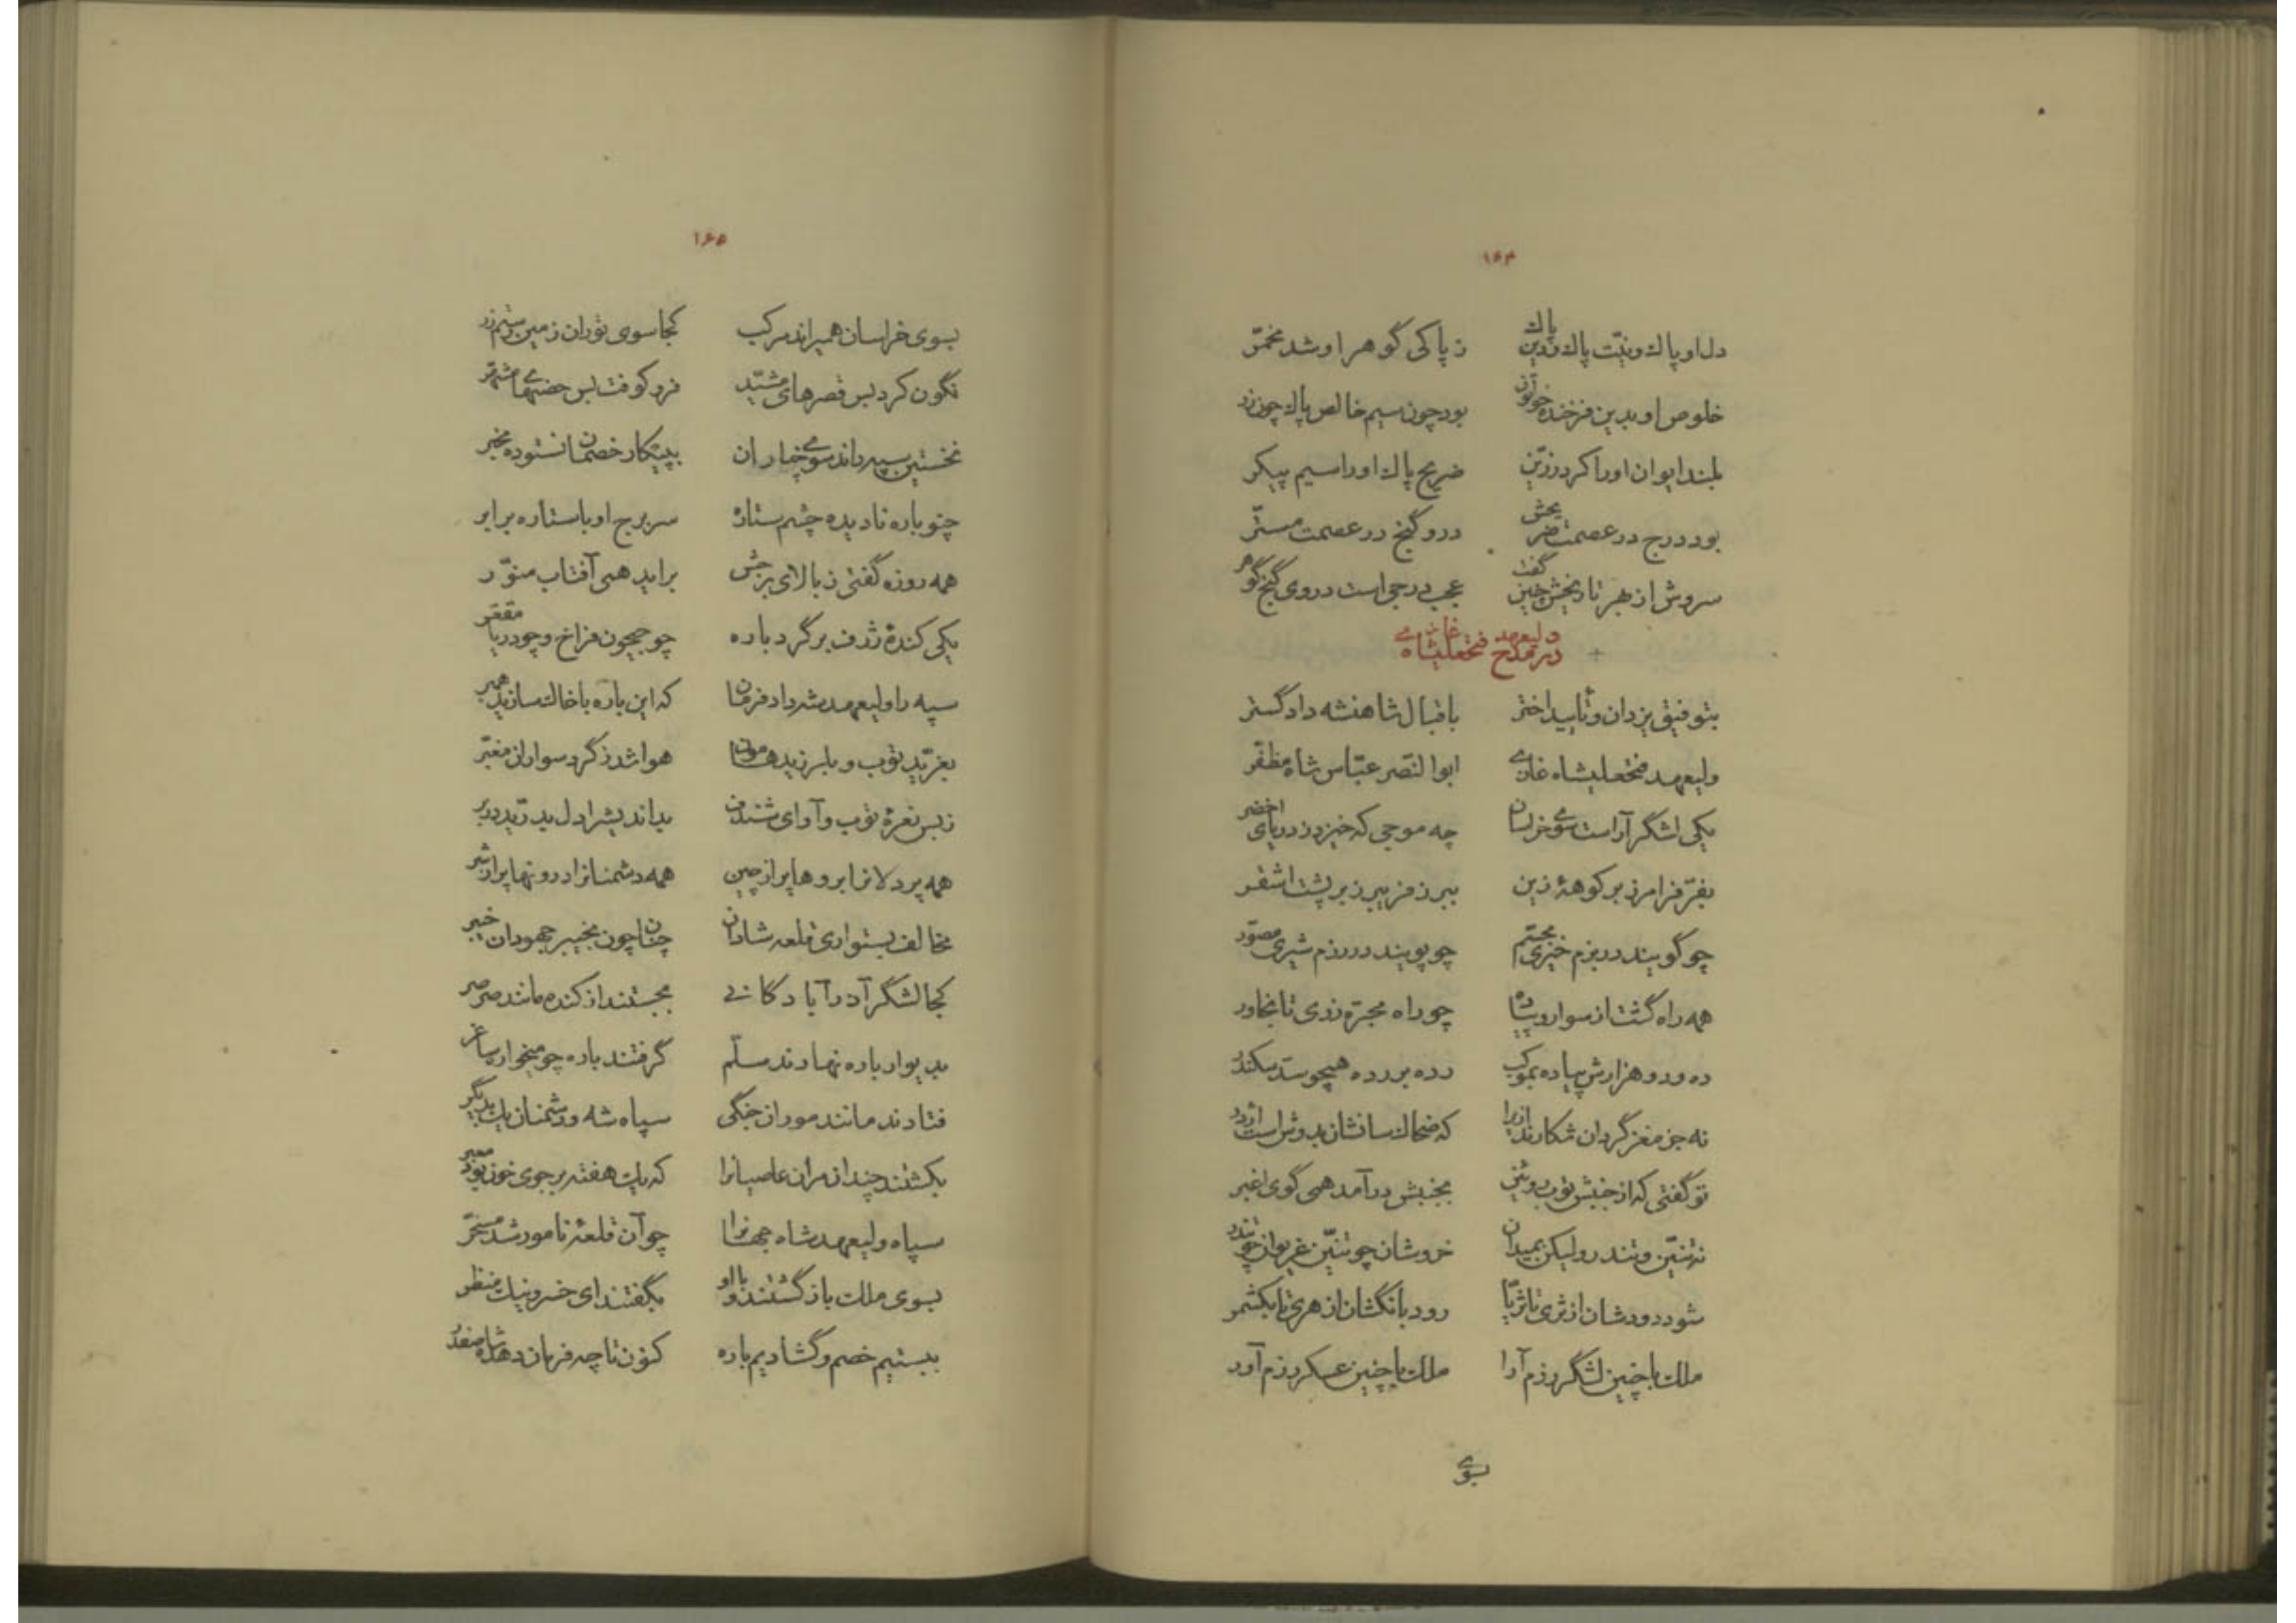 ۱۶۴
دل او پاک و نیّت پاک و دین پاک ز پاکی گوهر او شد مخمّر
خلوص او بدین فرخنده خوتون بود چون سیم خالص پاک چون زر
بلند ایوان او را کرد زرّین ضریح پاک او را سیم پیکر
بود درج در عصمت ضریحش درو گنج در عصمت مستّر
سروش از بهر تاریخش چنین گفت عجب درجی است در وی گنج گوهر
در مدح ولیعهد فتحعلیشاه غازی
بتوفیق یزدان و تأیید اختر باقبال شاهنشه دادگستر
ولیعهد فتحعلیشاه غازی ابوالنّصر عبّاس شاه مظفّر
یکی لشگر آراست سوی خراسان چه موجی که خیزد ز دریای اخضر
بفرّ فرامرز بر کوههٔ زین ببرز فریبرز بر پشت اشقر
چو گویند در بزم خیری مجسّم چو پویند در رزم شیری مصوّر
همه راه گشت از سوار و پیاده چو راه مجرّه ز ری تا بخاور
ده و دو هزارش پیاده بموکب رده بر رده همچو سدّ سکندر
نه جز مغز گردان شکارند ازیرا که ضحاک سانشان بدوش است اژدر
تو گفتی که از جنبش توپ روئین بجنبش درآمد همی گوی اغبر
نه تنّین و تندر ولیکن بمیدان خروشان چو تنّین غریوان چو تندر
شود دودشان از ثری تا ثریّا رود بانگشان از هری تا بکشمر
ملک با چنین لشگر رزم آرا ملک با چنین عسکر رزم آور
بسوی
۱۶۵
بسوی خراسان همیراند مرکب کجا سوی توران زمین رستم زر
نگون کرد بس قصرهای مشیّد فرو کوفت بس حصنهای مشمّر
نخستین سپه راند سوی خباران بپیکار خصمان نستوده مخبر
چنو باره نادیده چشم ستاره سر برج او با ستاره برابر
همه روزه گفتی ز بالای برجش براید همی آفتاب منوّر
یکی کندهٔ ژرف بر گرد باره چو جیحون فراخ و چو دریا مقعّر
سپه را ولیعهد شه داد فرمان که این باره با خاک سازید همبر
بغرّید توپ و بلرزید هامون هوا شد ز گرد سواران مغبّر
ز بس نعرهٔ توپ و آوای شندف بداندیش را دل بدرّید در بر
همه پردلان را بروها پر از چین همه دشمنان را درونها پر آذر
مخالف بستواری قلعه شادان چنان چون بخیبر جهودان خیبر
کجا لشگر آذرآبادگانی بجستند از کنده مانند صرصر
بدیوار باره نهادند سلّم گرفتند باره چو میخواره ساغر
فتادند مانند موران جنگی سپاه شه و دشمنان یک بدیگر
بکشتند چندان مران عاصیانرا که یک هفته بر جوی خون بود معبر
سپاه ولیعهد شاه جهانرا چو آن قلعهٔ نامور شد مسخّر
بسوی ملک بازگشتند و با او بگفتند ای خسرو نیک منظر
ببستیم خصم و گشادیم باره کنون تا چه فرمان دهد شاه صفدر